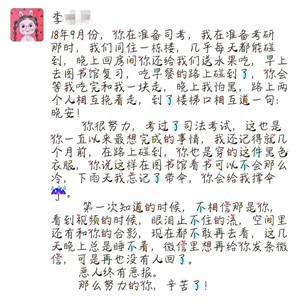 李
18年9月份，你在准备司考，我在准备考研
那时，我们同住一栋楼，几乎每天都能碰
到，晚上回房间你还给我们送水果吃，早上
去图书馆复习，吃早餐的路上碰到了，你会
等我吃完和我一块走，晚上我怕黑，路上两
个人相互拖着走，到了楼梯口相互道一句：
晚安！
你很努力，考过了司法考试，这也是
你一直以来最想完成的事情，我还记得就几
个月前，在路上碰到，你也是穿的这件黑色
衣服，你说这样在图书馆看书可以不会那么
冷，下雨天我忘记了带伞，你会给我撑伞
了。
第一次知道的时候，不相信那是你，
看到视频的时候，眼泪止不住的流，空间里
还有和你的合影，现在都不敢再去看，这几
天晚上总是睡不着，微信里想再给你发条微
信，可是再也没有人回了。
恶人终有恶报。
那么努力的你，辛苦了！